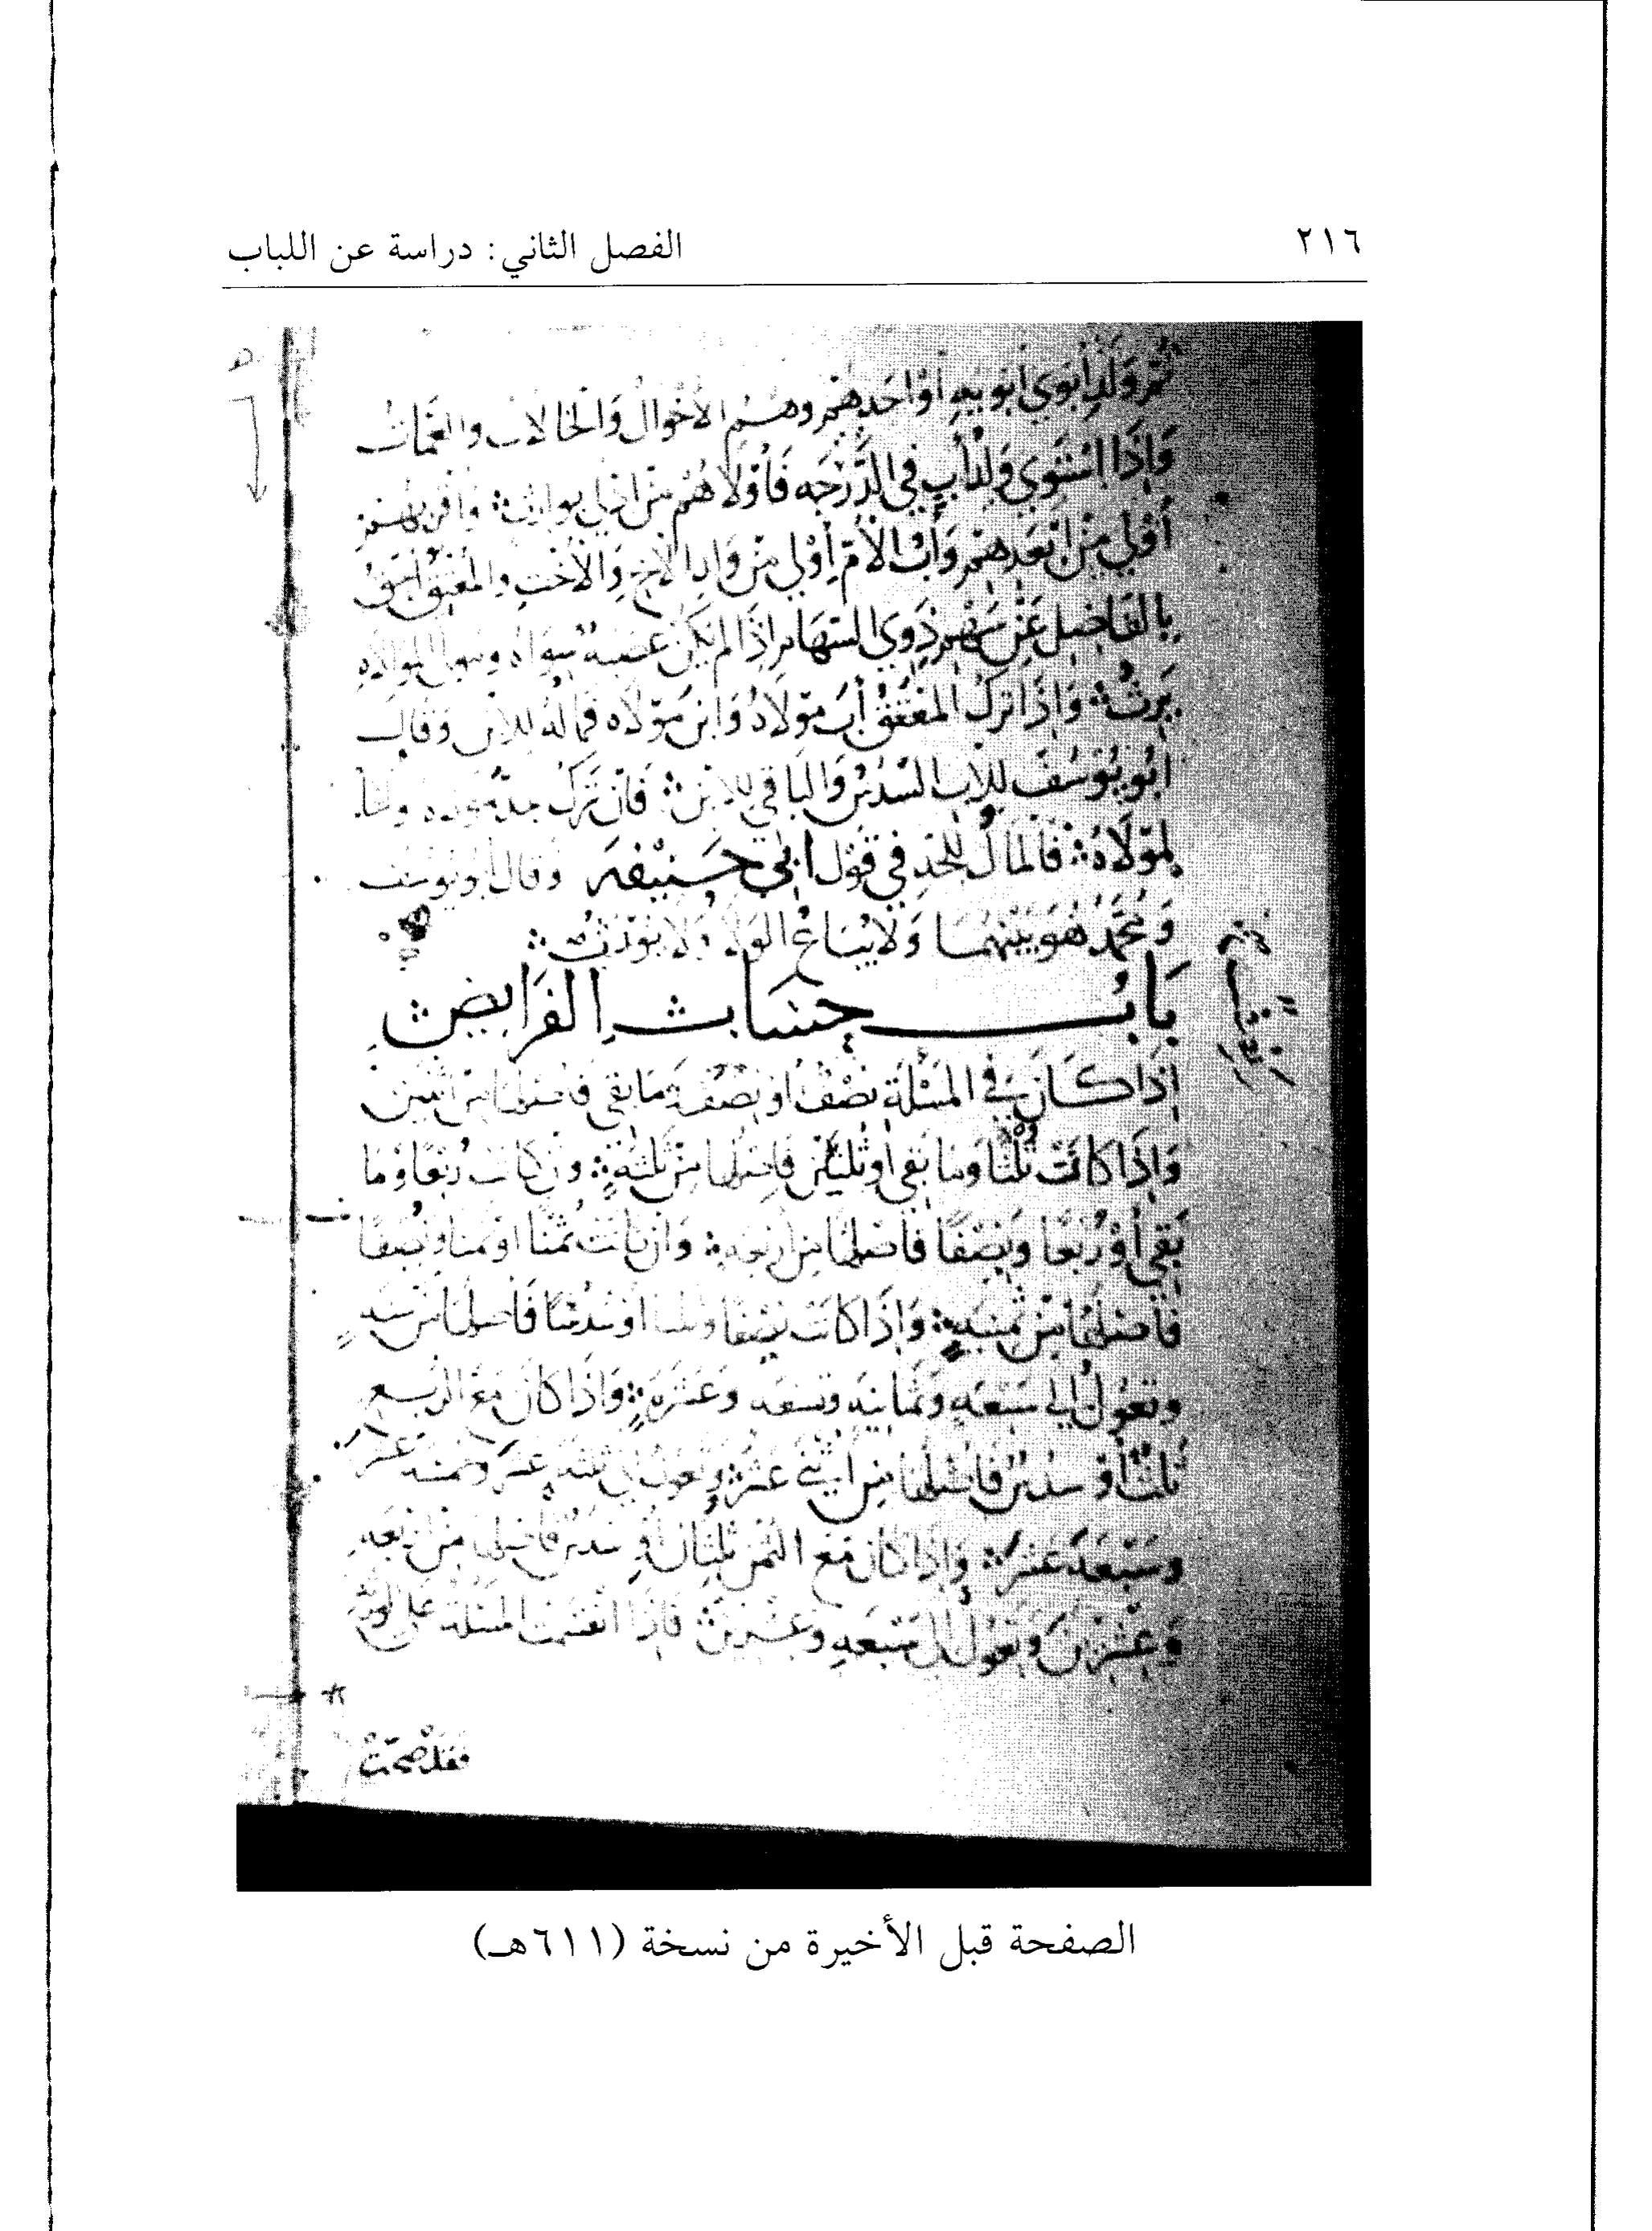 ٢١٦
الفصل الثاني: دراسة عن اللباب
ثم ولد أبوي أبويه أو أحدهم وهم الأخوال والخالات والعمات
وإذا استوى ولد أب في الدرجة فأولاهم من أدلى بوارث وأقربهم
أولى من أبعدهم وأب الأم أولى من ولد الأخ والأخت والمعتق أحق
بالفاضل عن سهم ذوي السهام إذا لم يكن عصبة سواه ومولى الموالاه
يرث وإذا ترك المعتق أب مولاه وابن مولاه فماله للابن وقال
أبو يوسف للأب السدس والباقي للابن فإن ترك جد مولاه
لمولاه فالمال للجد في قول أبي حنيفة وقال أبو يوسف
ومحمد هو بينهما ولا يباع الولا ولا يورث
باب حساب الفرايض
إذا كان في المسئلة نصف أو نصف وما بقي فأصلها من اثنين
وإذا كانت ثلثا وما بقي أو ثلثين فأصلها من ثلثة وإن كانت ربعا وما
بقي أو ربعا ونصفا فأصلها من أربعة وإن كانت ثمنا أو ثمنا ونصفا
فأصلها من ثمنية وإذا كانت نصفا وثلثا أو سدسا فأصلها من ستة
وتعول إلى سبعة وثمانية وتسعة وعشرة وإذا كان مع الربع
ثلث أو سدس فأصلها من اثني عشر وتعول إلى ثلثة عشر وخمسة عشر
وسبعة عشر وإذا كان مع الثمن ثلثان أو سدس فأصلها من أربعة
وعشرين وتعول إلى سبعة وعشرين فإذا انقسمت المسئلة على الورثة
فقد صحت
الصفحة قبل الأخيرة من نسخة (٦١١هـ)